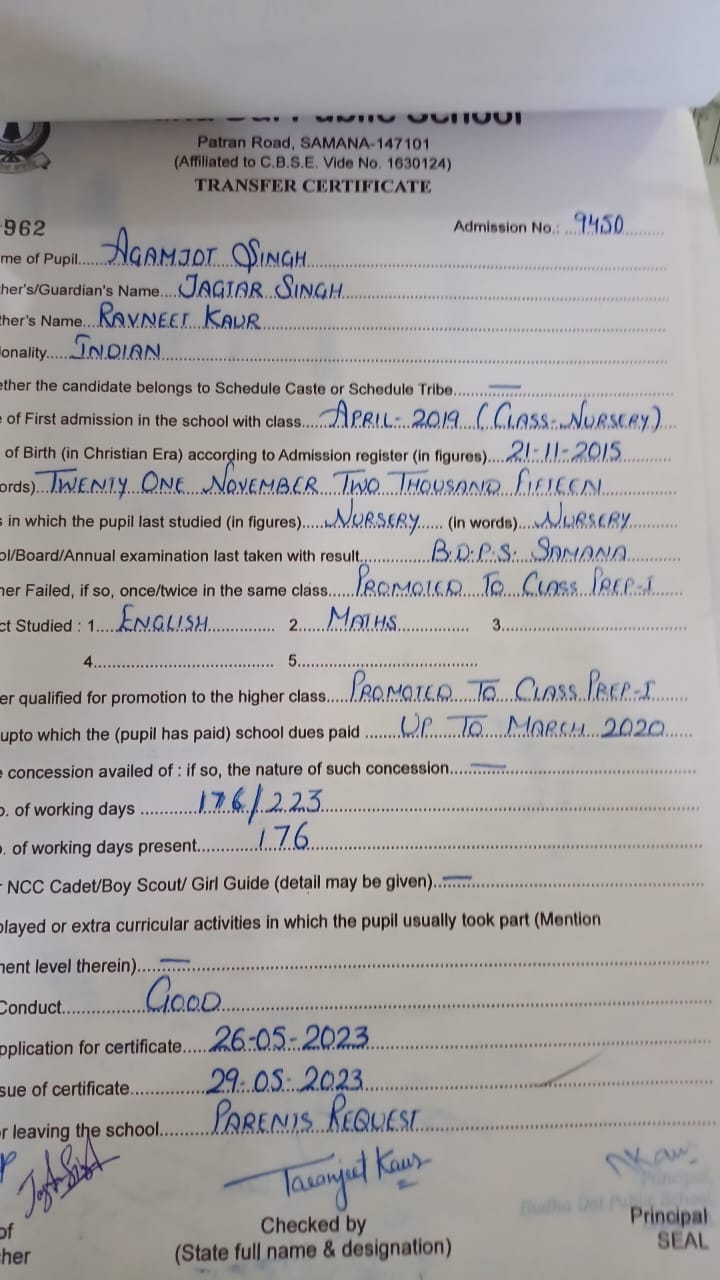 Public School
Patran Road, SAMANA-147101
(Affiliated to C.B.S.E. Vide No. 1630124)
TRANSFER CERTIFICATE
962 Admission No.: 9450
me of Pupil AGAMJOT SINGH
her's/Guardian's Name JAGTAR SINGH
her's Name RAVNEET KAUR
onality INDIAN
ether the candidate belongs to Schedule Caste or Schedule Tribe —
of First admission in the school with class APRIL- 2019 (CLASS-NURSERY)
of Birth (in Christian Era) according to Admission register (in figures) 21-11-2015
ords) TWENTY ONE NOVEMBER TWO THOUSAND FIFTEEN
in which the pupil last studied (in figures) NURSERY (in words) NURSERY
ol/Board/Annual examination last taken with result B.D.P.S. SAMANA
her Failed, if so, once/twice in the same class PROMOTED TO CLASS PREP-I
ct Studied : 1 ENGLISH 2 MATHS 3
4 5
er qualified for promotion to the higher class PROMOTED TO CLASS PREP-I
upto which the (pupil has paid) school dues paid UP TO MARCH 2020
concession availed of : if so, the nature of such concession —
o. of working days 176/223
. of working days present 176
NCC Cadet/Boy Scout/ Girl Guide (detail may be given) —
played or extra curricular activities in which the pupil usually took part (Mention
ment level therein) —
Conduct GOOD
pplication for certificate 26-05-2023
sue of certificate 29-05-2023
r leaving the school PARENTS REQUEST
Taranjeet Kaur
Principal
Budha Dal Public School
of Checked by Principal
her (State full name & designation) SEAL